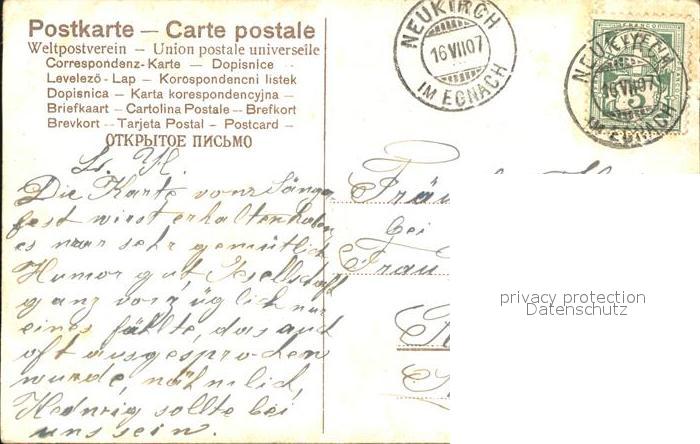 Postkarte — Carte postale
Weltpostverein — Union postale universelle
Correspondenz-Karte — Dopisnice
Levelező-Lap — Korospondencni listek
Dopisnica — Karta korespondencyjna —
Briefkaart — Cartolina Postale — Brefkort
Brevkort — Tarjeta Postal — Postcard —
ОТКРЫТОЕ ПИСЬМО
NEUKIRCH
16 VII 07
IM EGNACH
NEUKIRCH
16 VII 07
IM EGNACH
5
Die Karte vom Sänger
fest wirst erhalten haben
es war sehr gemütlich
Humor gut, Gesellschaft
ganz vorzüglich nur
eines fällte, das auch
oft ausgesprochen
wurde, nähmlich,
Hedwig sollte bei
uns sein.
Fräu
bei
Frau
privacy protection
Datenschutz